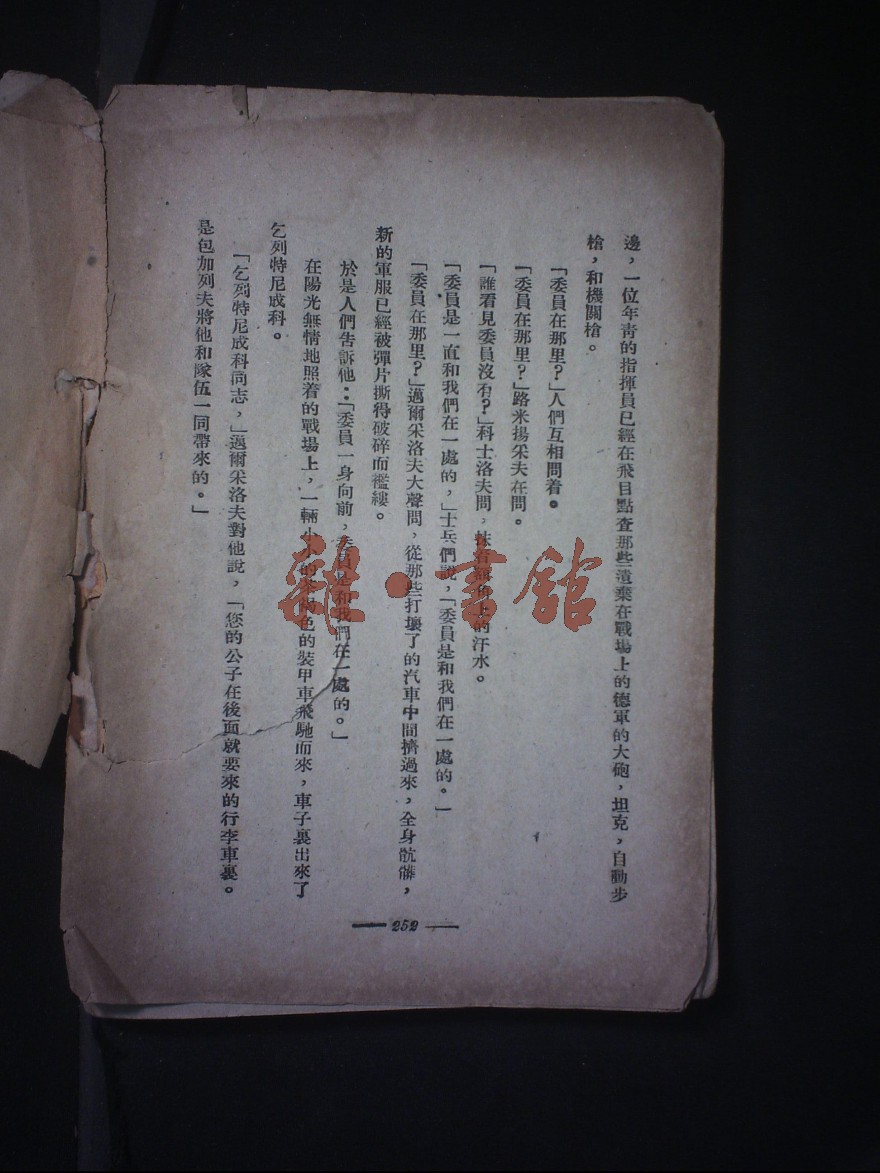 邊，一位年靑的指揮員已經在飛目點査那些遺棄在戰場上的德軍的大砲，坦克，自動步
槍，和機關槍。
「委員在那里？」人們互相問着。
「委員在那里？」路米揚采夫在問。
「誰看見委員沒有？」科士洛夫問，抹着額角上的汗水。
「委員是一直和我們在一處的，」士兵們說，「委員是和我們在一處的。」
「委員在那里？」邁爾采洛夫大聲問，從那些打壞了的汽車中間擠過來，全身骯髒，
新的軍服已經被彈片撕得破碎而襤縷。
於是人們告訴他：「委員一身向前，委員是和我們在一處的。」
在陽光無情地照着的戰場上，一輛小小的茶褐色的裝甲車飛馳而來，車子裏出來了
乞列特尼成科。
「乞列特尼成科同志，」邁爾采洛夫對他說，「您的公子在後面就要來的行李車裏。
是包加列夫將他和隊伍一同帶來的。」
252
雜·書館